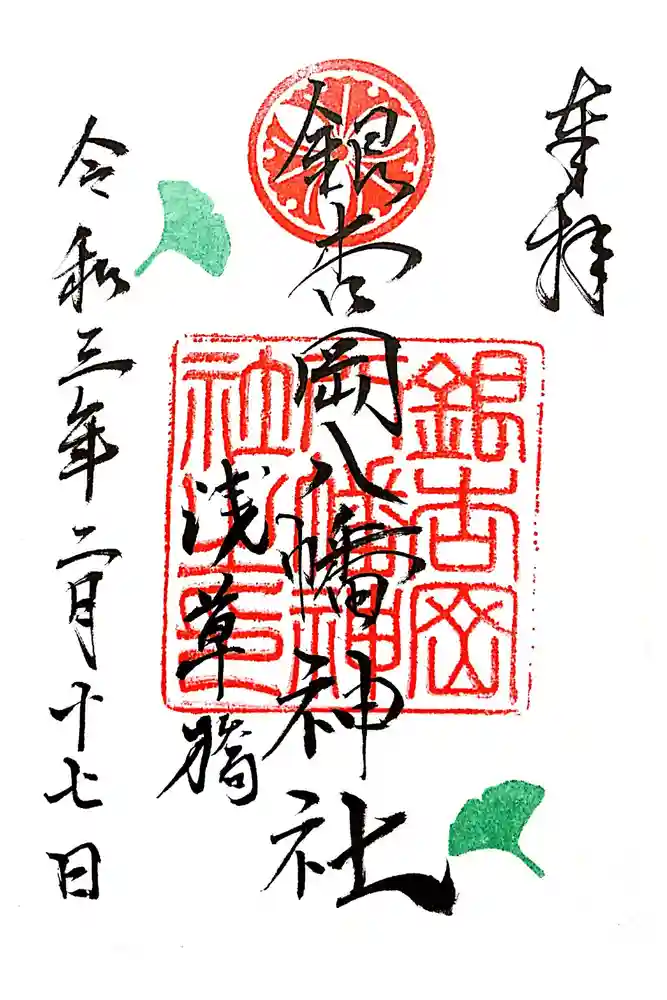 奉拝
銀杏岡八幡神社
浅草橋
令和三年二月十七日
銀杏岡
八幡神
社之印